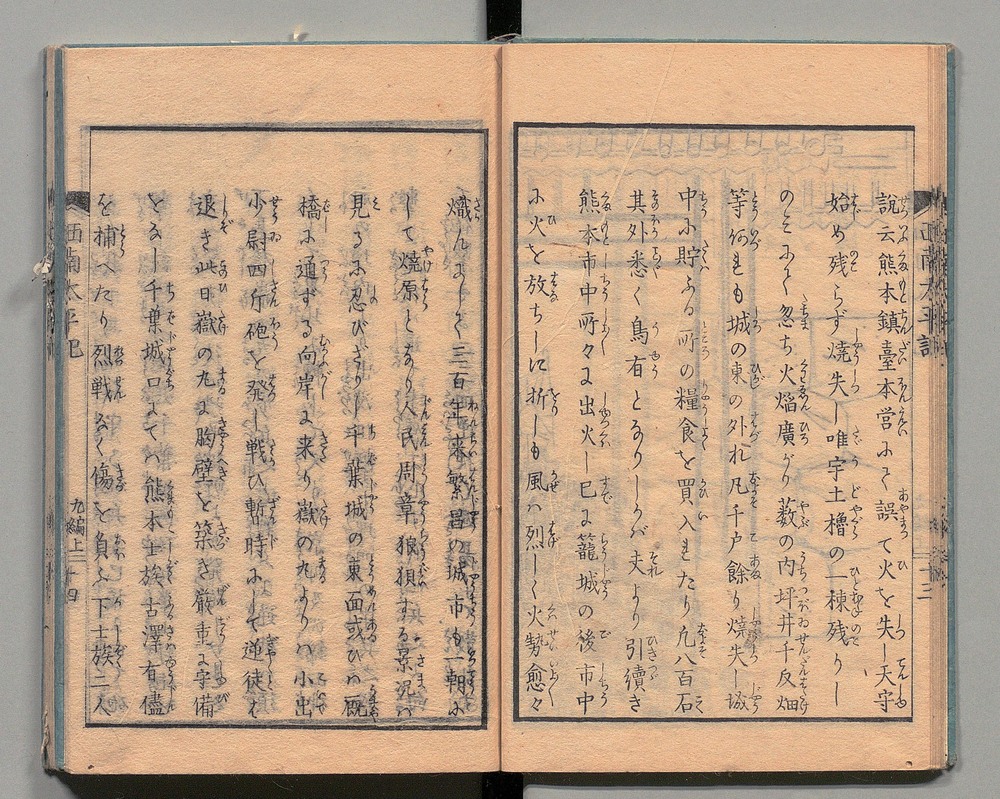 説云熊本鎮臺本営にて誤て火を失し天守
始め残らず焼失し唯宇土櫓の一棟残りし
のミにて忽ち火焔廣がり薮の内坪井千反畑
等何れも城の東の外れ凡千戸餘り焼失し城
中に貯ふる所の糧食を買入れたり凡八百石
其外悉く烏有となりしが夫より引續き
熊本市中所々より出火し已に籠城の後市中
に火を放ちしに折しも風ハ烈しく火勢愈々
熾んにして三百年来繁昌の城市も一朝に
して焼原となり人民周章狼狽する景況ハ
見るに忍びざりし千葉城の東面或ひハ厩
橋に通ずる向岸より来り嶽の丸よりハ小出
少尉四斤砲を発し戦ひ暫時にして逆徒ハ
退き此日嶽の丸に胸壁を築き厳重に守備
をなし千葉城口にて熊本士族古澤有儘
を捕へたり烈戦なく傷を負ふ下士族二人
西南太平記
九編上
十四